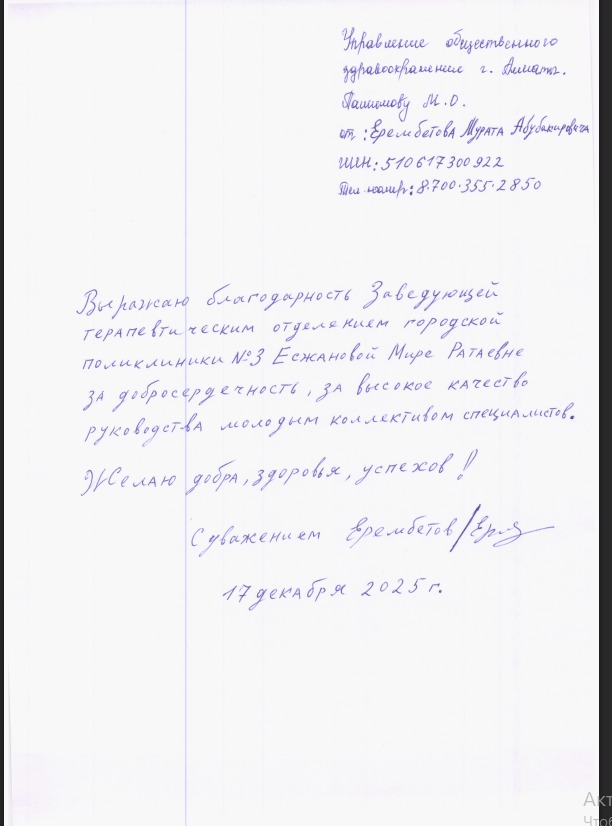 Управление общественного
здравоохранения г. Алматы.
М.О.
от: Ерембетова Мурата Абубакировича
ИИН: 510617300922
Тел. номер: 8.700.355.2850
Выражаю благодарность Заведующей
терапевтическим отделением городской
поликлиники №3 Есжановой Мире Ратаевне
за добросердечность, за высокое качество
руководства молодым коллективом специалистов.
Желаю добра, здоровья, успехов!
С уважением Ерембетов/
17 декабря 2025 г.